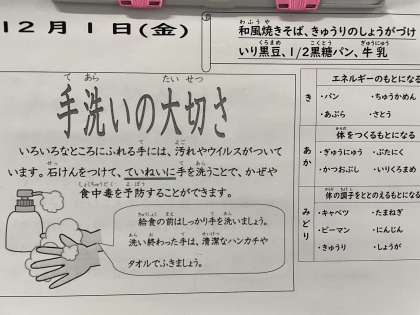 12月1日(金)
和風焼きそば、きゅうりのしょうがづけ
いり黒豆、1/2黒糖パン、牛乳
手洗いの大切さ
いろいろなところにふれる手には、汚れやウイルスがついて
います。石けんをつけて、ていねいに手を洗うことで、かぜや
食中毒を予防することができます。
給食の前はしっかり手を洗いましょう。
洗い終わった手は、清潔なハンカチや
タオルでふきましょう。
き
エネルギーのもとになる
・パン ・ちゅうかめん
・あぶら ・さとう
あか
体をつくるもとになる
・ぎゅうにゅう ・ぶたにく
・かつおぶし ・いりくろまめ
みどり
体の調子をととのえるもとになる
・キャベツ ・たまねぎ
・ピーマン ・にんじん
・きゅうり ・しょうが